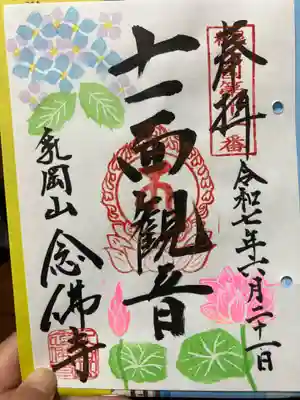 奉拝
令和七年六月二十一日
十一面観音
乳岡山
念佛寺